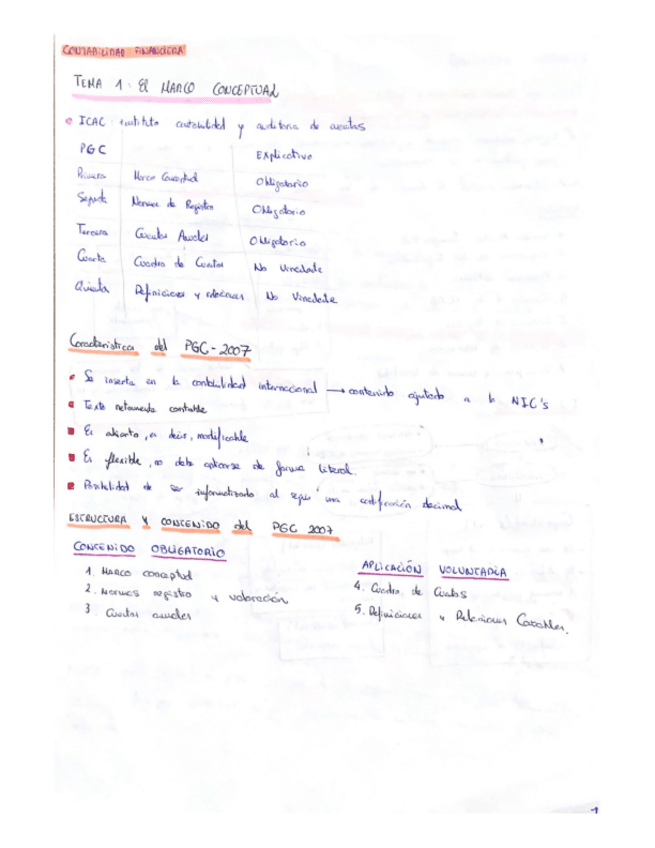 CONTABILIDAD FINANCIERA
TEMA 1: El MARCO CONCEPTUAL
ICAC: instituto contabilidad y auditoria de cuentas
PGC Explicativo
Primera Marco Conceptual Obligatorio
Segunda Normas de Registro Obligatorio
Tercera Cuentas Anuales Obligatorio
Cuarta Cuadro de Cuentas No Vinculante
Quinta Definiciones y relaciones No Vinculante
Características del PGC-2007
Se inserta en la contabilidad internacional → contenido ajustado a la NIC's
Texto netamente contable
Es abierto, es decir, modificable
Es flexible, no debe aplicarse de forma literal.
Posibilidad de ser informatizado al seguir una codificación decimal
ESTRUCTURA Y CONTENIDO del PGC 2007
CONTENIDO OBLIGATORIO
1. Marco conceptual
2. Normas registro y valoración
3. Cuentas anuales
APLICACIÓN VOLUNTARIA
4. Cuadro de Cuentas
5. Definiciones y Relaciones Contables.
1